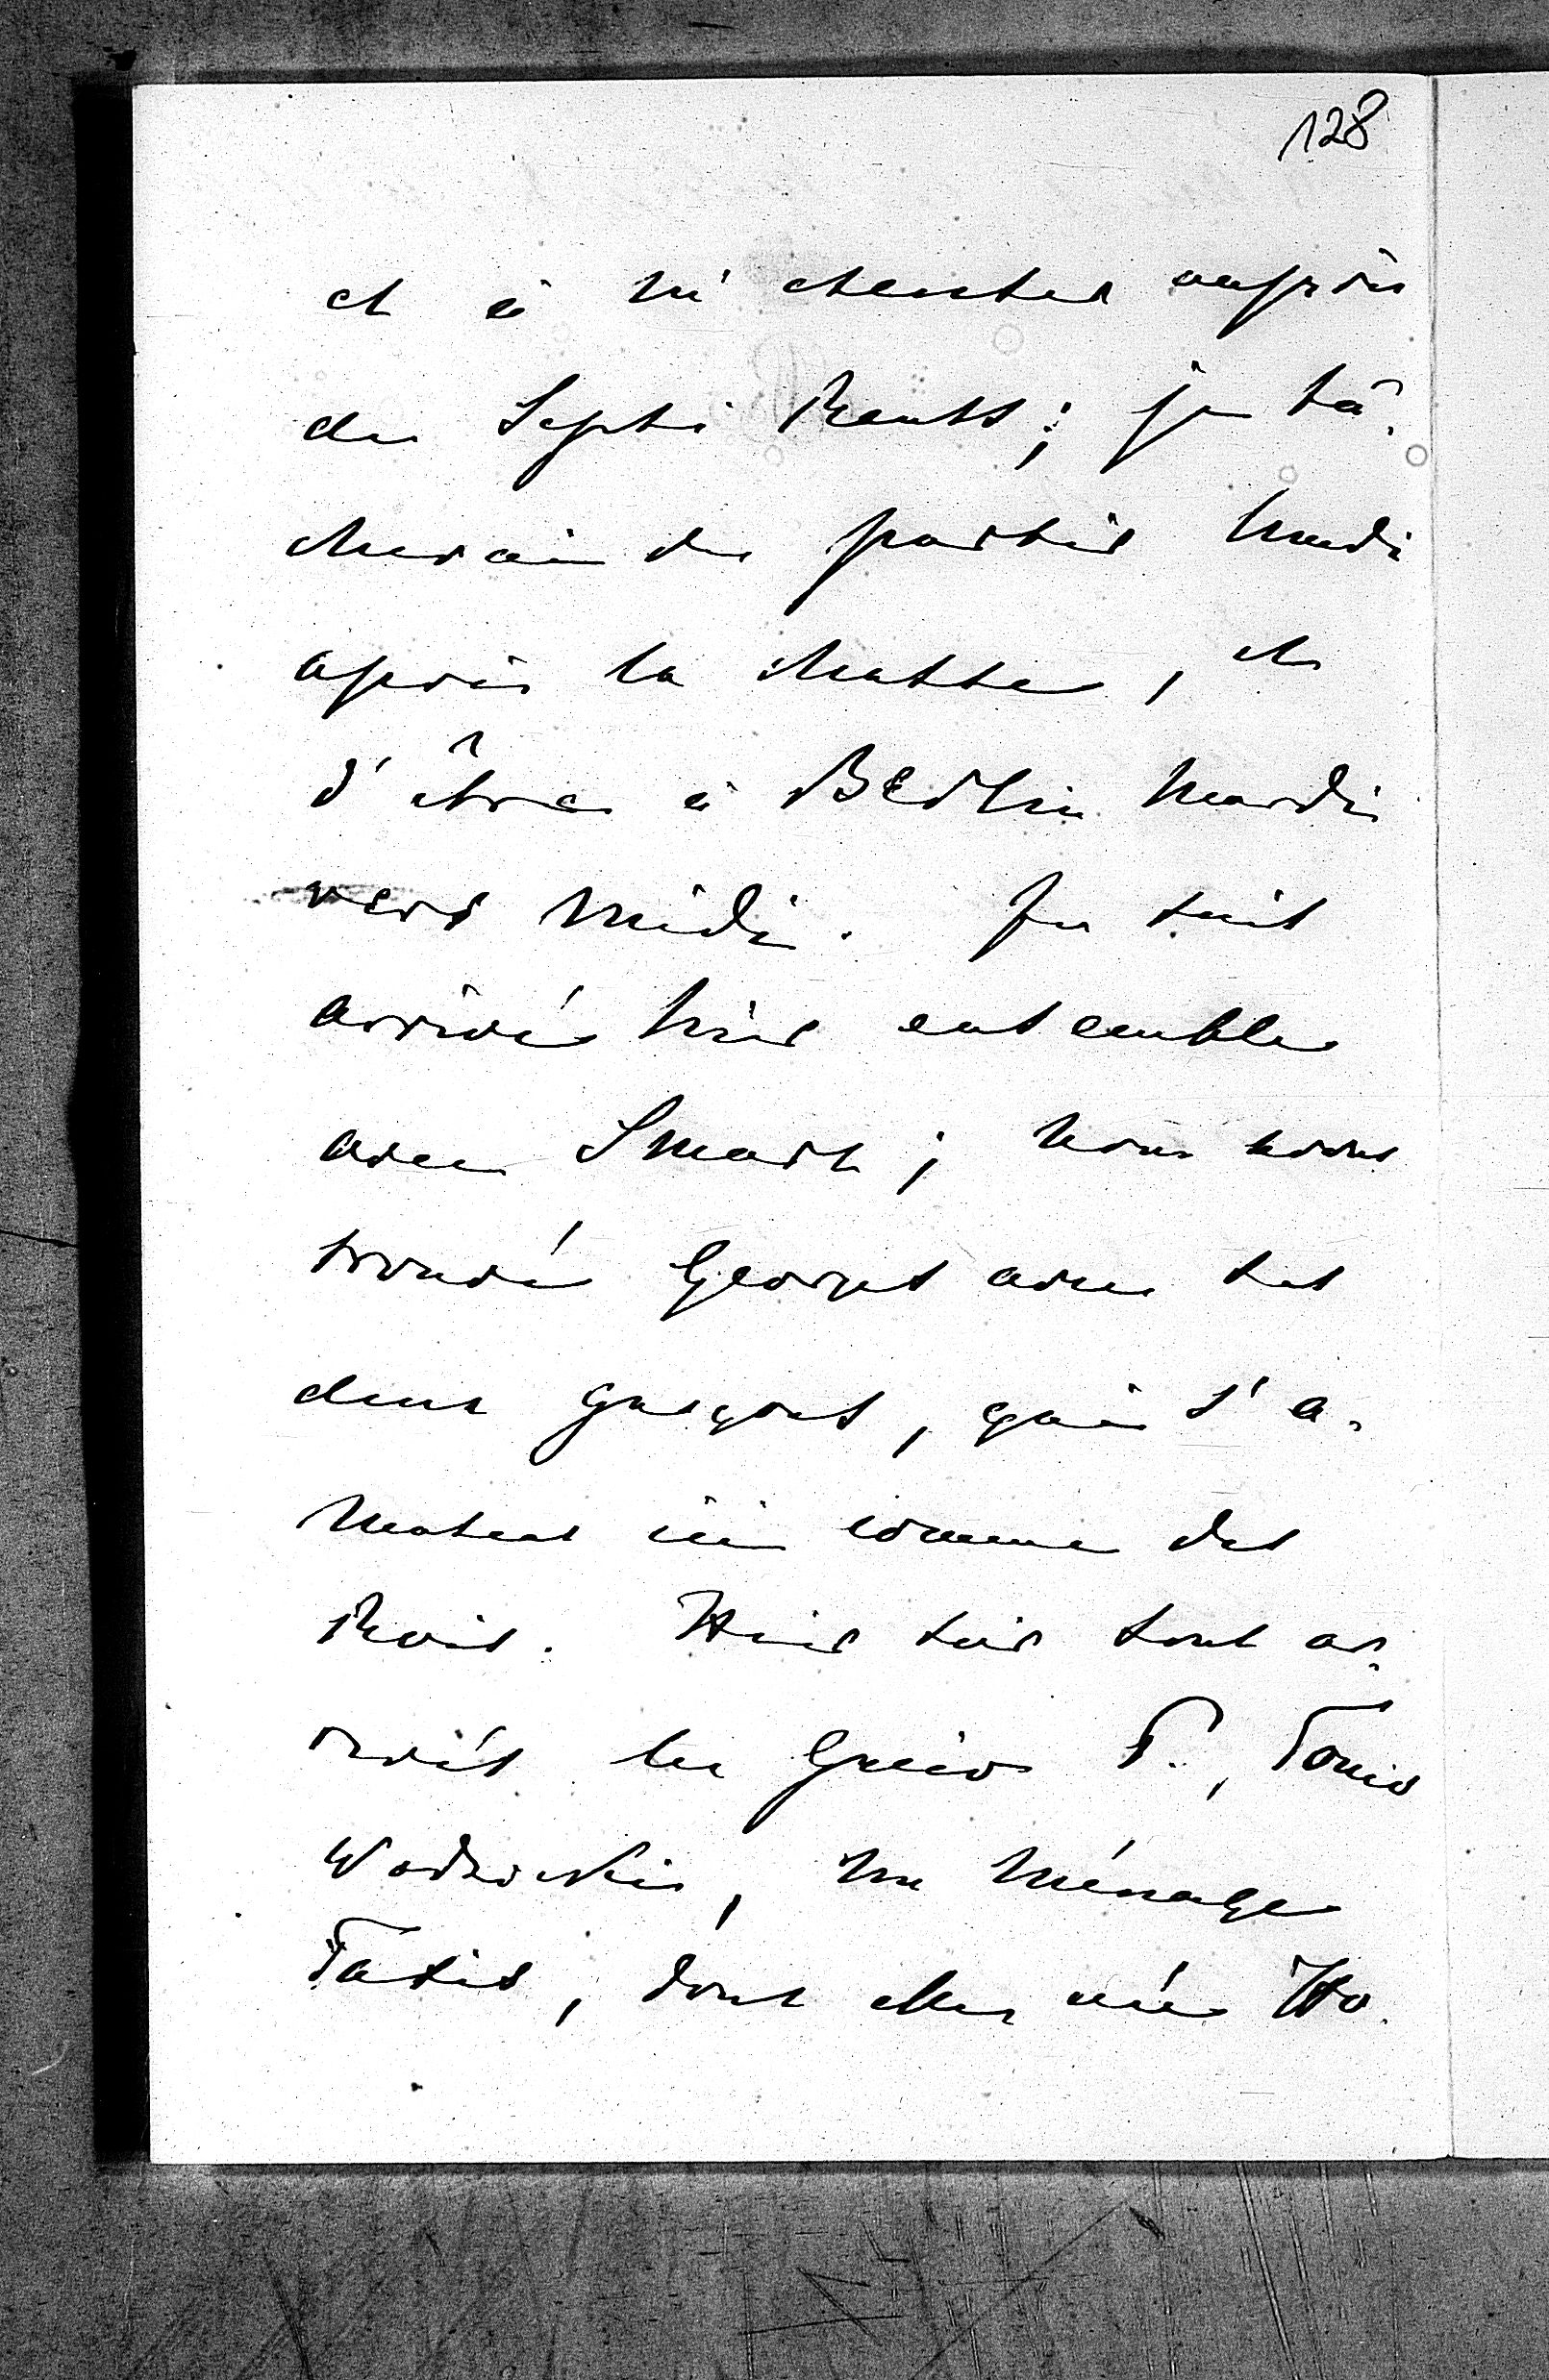 128
et à m'excuser auprès
de Septi Reuss; je tâ-
cherai de partir lundi
après la chasse, et
d'être à Berlin mardi
vers midi. Je suis
arrivé hier ensemble
avec Smart; nous avons
trouvé Georges avec ses
deux garçons, qui s'a-
musent ici comme des
Rois. Hier soir sont ar-
rivés le Guido T., Tonio
Wodzicki, un ménage
Taxis, dont elle née Ho-